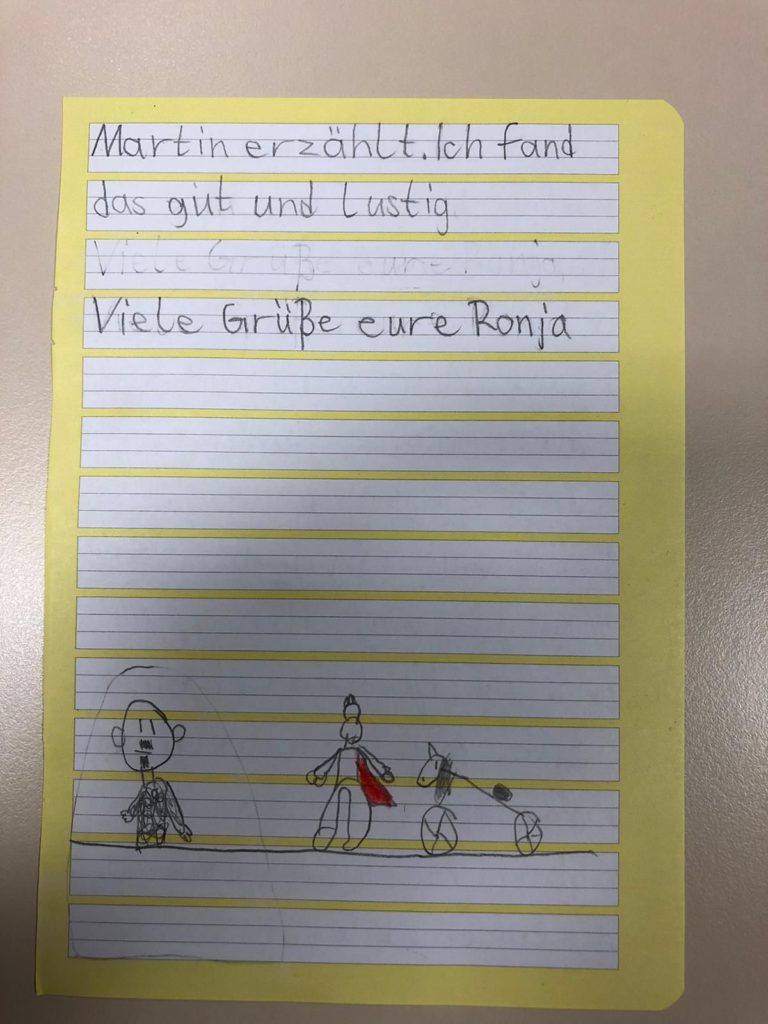 Martin erzählt. Ich fand
das gut und lustig
Viele Grüße eure Ronja
Viele Grüße eure Ronja